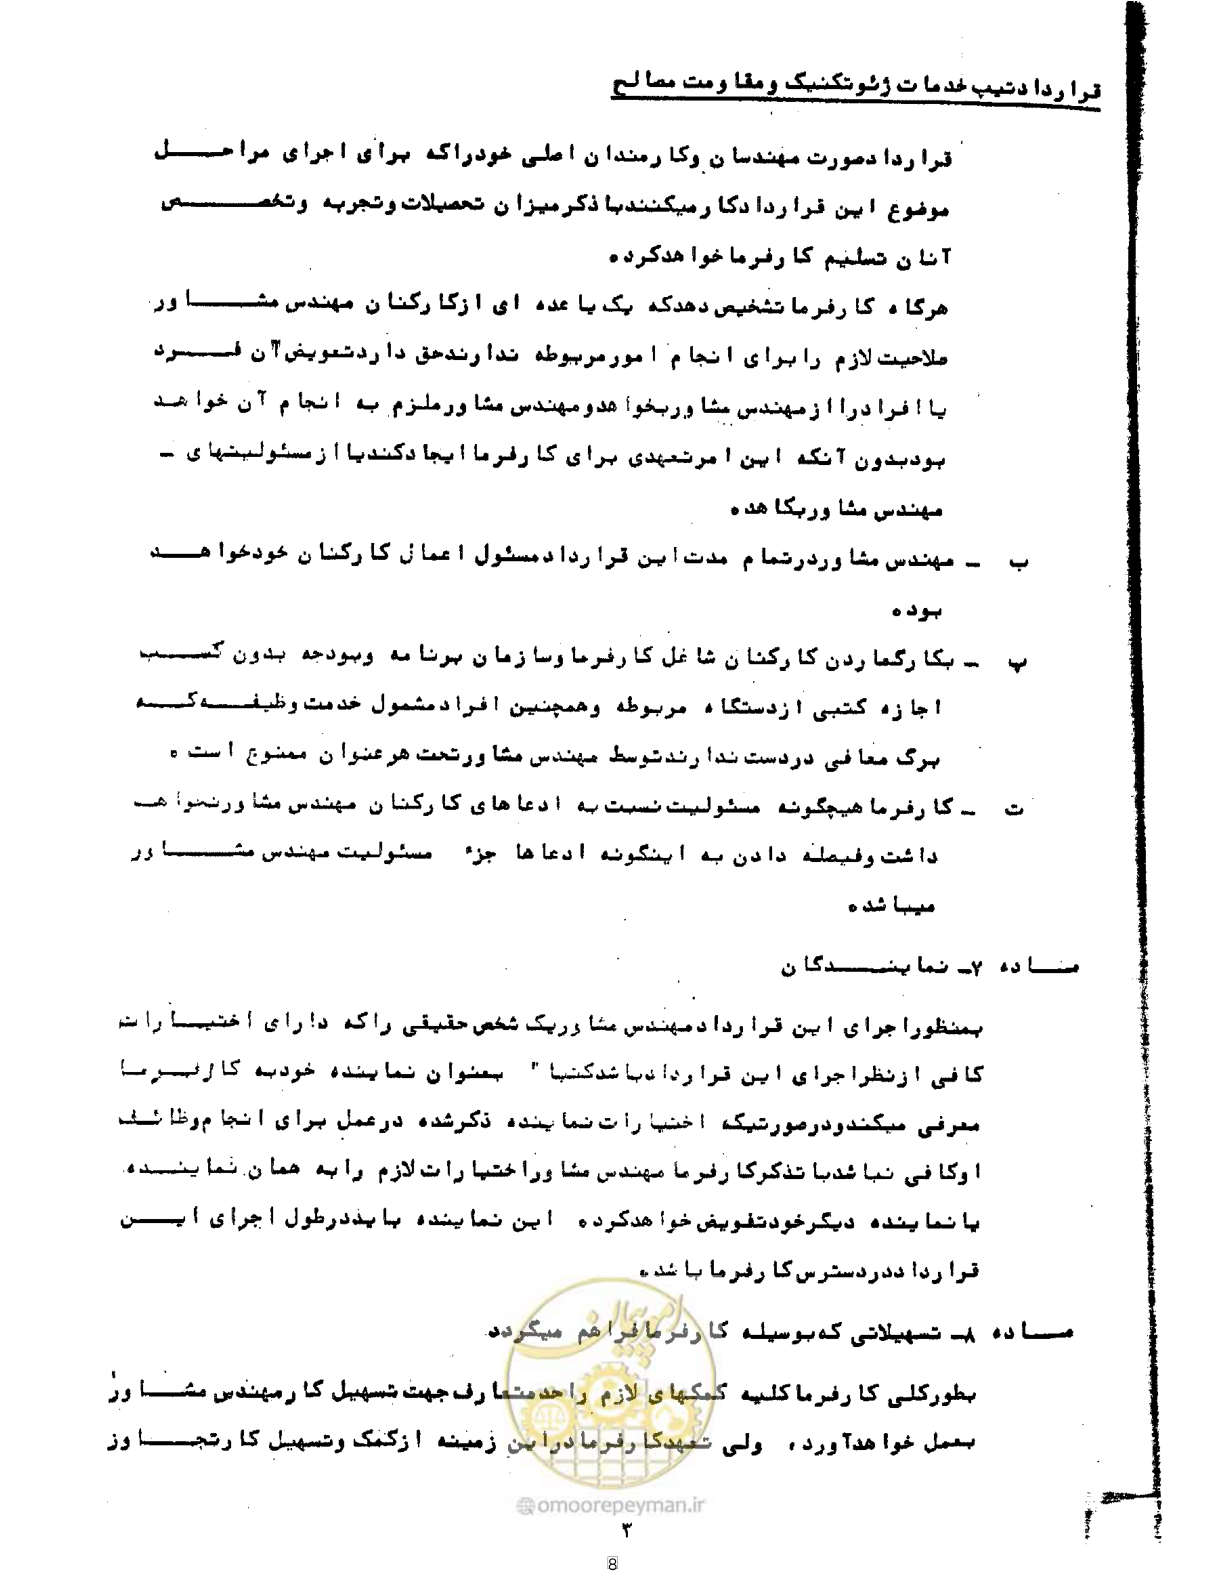 قرارداد تیپ خدمات ژئوتکنیک و مقاومت مصالح
قرارداد صورت مهندسان وکارمندان اصلی خودراکه برای اجرای مراحل
موضوع این قرارداد کار میکنند با ذکر میزان تحصیلات وتجربه وتخصص
آنان تسلیم کارفرما خواهدکرد.
هرگاه کارفرما تشخیص دهدکه یک یا عده ای ازکارکنان مهندس مشاور
صلاحیت لازم را برای انجام امور مربوطه ندارند حق دارد تعویض آن فرد
یا افراد را از مهندس مشاور بخواهد و مهندس مشاور ملزم به انجام آن خواهد
بود بدون آنکه این امر تعهدی برای کارفرما ایجاد کند یا از مسئولیتهای ـ
مهندس مشاور بکاهد.
ب ـ مهندس مشاور در تمام مدت این قرارداد مسئول اعمال کارکنان خود خواهد
بود.
پ ـ بکار گماردن کارکنان شاغل کارفرما وسازمان برنامه وبودجه بدون کسب
اجازه کتبی از دستگاه مربوطه وهمچنین افراد مشمول خدمت وظیفه که
برگ معافی در دست ندارند توسط مهندس مشاور تحت هر عنوان ممنوع است.
ت ـ کارفرما هیچگونه مسئولیت نسبت به ادعاهای کارکنان مهندس مشاور نخواهد
داشت وفیصله دادن به اینگونه ادعاها جزء مسئولیت مهندس مشاور
میباشد.
ماده ۷ـ نمایندگان
بمنظور اجرای این قرارداد مهندس مشاور یک شخص حقیقی راکه دارای اختیارات
کافی از نظر اجرای این قرارداد باشد کتبا" بعنوان نماینده خود به کارفرما
معرفی میکند و در صورتیکه اختیارات نماینده ذکر شده در عمل برای انجام وظائف
او کافی نباشد با تذکر کارفرما مهندس مشاور اختیارات لازم را به همان نماینده
یا نماینده دیگر خود تفویض خواهدکرد. این نماینده باید در طول اجرای این
قرارداد در دسترس کارفرما باشد.
ماده ۸ـ تسهیلاتی که بوسیله کارفرما فراهم میگردد
بطورکلی کارفرما کلیه کمکهای لازم را حد متعارف جهت تسهیل کار مهندس مشاور
بعمل خواهد آورد، ولی تعهد کارفرما در این زمینه از کمک وتسهیل کار تجاوز
امور پیمان
@omoorepeyman.ir
۳
8